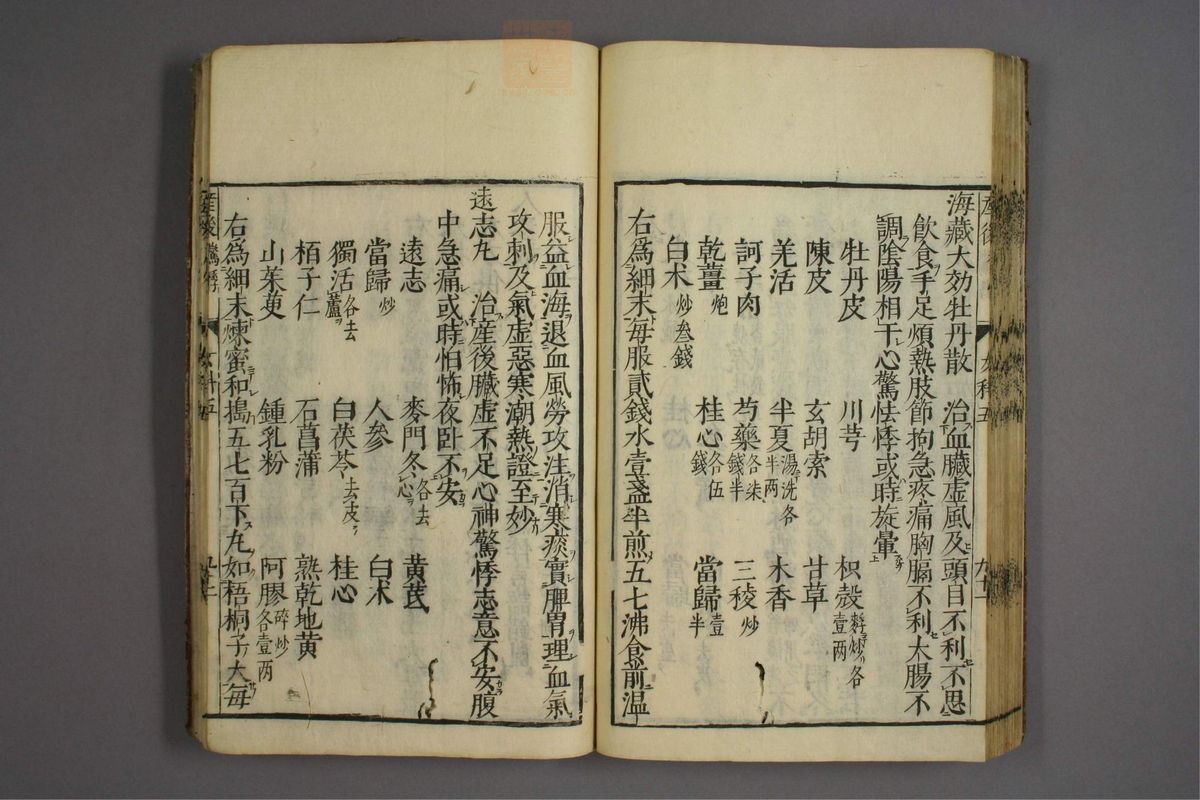 海藏大効牡丹散　治血臓虚風及頭目不利不思
飲食手足煩熱肢節拘急疼痛胸膈不利大腸不
調陰陽相干心驚怯悸或時旋暈
牡丹皮　川芎　枳殼麩炒各壹两
陳皮　玄胡索　甘草
羌活　半夏湯洗各半两　木香
訶子肉　芍藥各柒錢半　三稜炒
乾薑炮　桂心各伍錢　當歸壹半
白术炒叁錢
右爲細末每服貳錢水壹盞半煎五七沸食前温
服益血海退血風勞攻注消寒痰實脾胃理血氣
攻刺及氣虚惡寒潮熱證至妙
遠志丸　治産後臓虚不足心神驚悸志意不安腹
中急痛或時怕怖夜卧不安
遠志　麥門冬各去心　黄芪
當歸炒　人参　白术
獨活各去蘆　白茯苓去皮　桂心
栢子仁　石菖蒲　熟乾地黄
山茱萸　鍾乳粉　阿膠碎炒各壹两
右爲細末煉蜜和搗五七百下丸如梧桐子大每
女科五